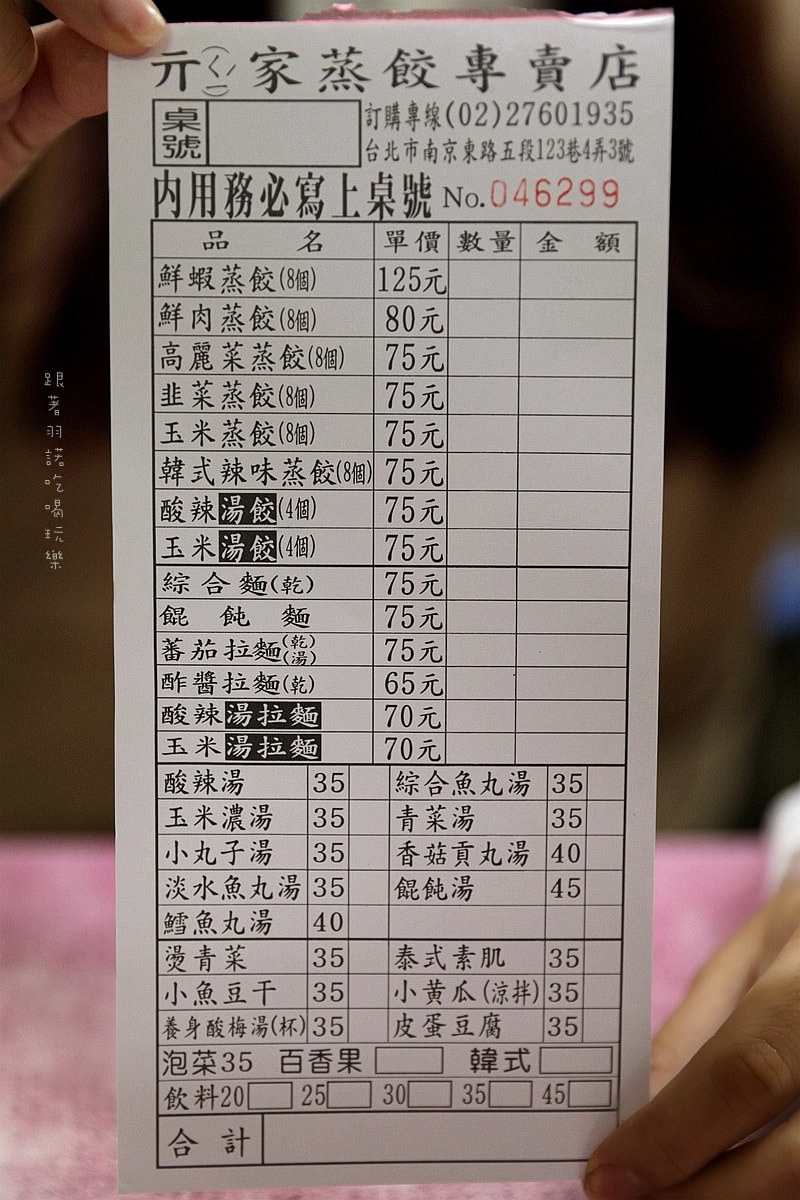 亓(ㄑㄧ)家蒸餃專賣店
桌號
訂購專線(02)27601935
台北市南京東路五段123巷4弄3號
內用務必寫上桌號 No.046299
品名 單價 數量 金額
鮮蝦蒸餃(8個) 125元
鮮肉蒸餃(8個) 80元
高麗菜蒸餃(8個) 75元
韭菜蒸餃(8個) 75元
玉米蒸餃(8個) 75元
韓式辣味蒸餃(8個) 75元
酸辣湯餃(4個) 75元
玉米湯餃(4個) 75元
綜合麵(乾) 75元
餛飩麵 75元
蕃茄拉麵(乾)(湯) 75元
酢醬拉麵(乾) 65元
酸辣湯拉麵 70元
玉米湯拉麵 70元
酸辣湯 35 綜合魚丸湯 35
玉米濃湯 35 青菜湯 35
小丸子湯 35 香菇貢丸湯 40
淡水魚丸湯 35 餛飩湯 45
鱈魚丸湯 40
燙青菜 35 泰式素肌 35
小魚豆干 35 小黃瓜(涼拌) 35
養身酸梅湯(杯) 35 皮蛋豆腐 35
泡菜35 百香果 韓式
飲料20 25 30 35 45
合計
跟著羽諾吃喝玩樂